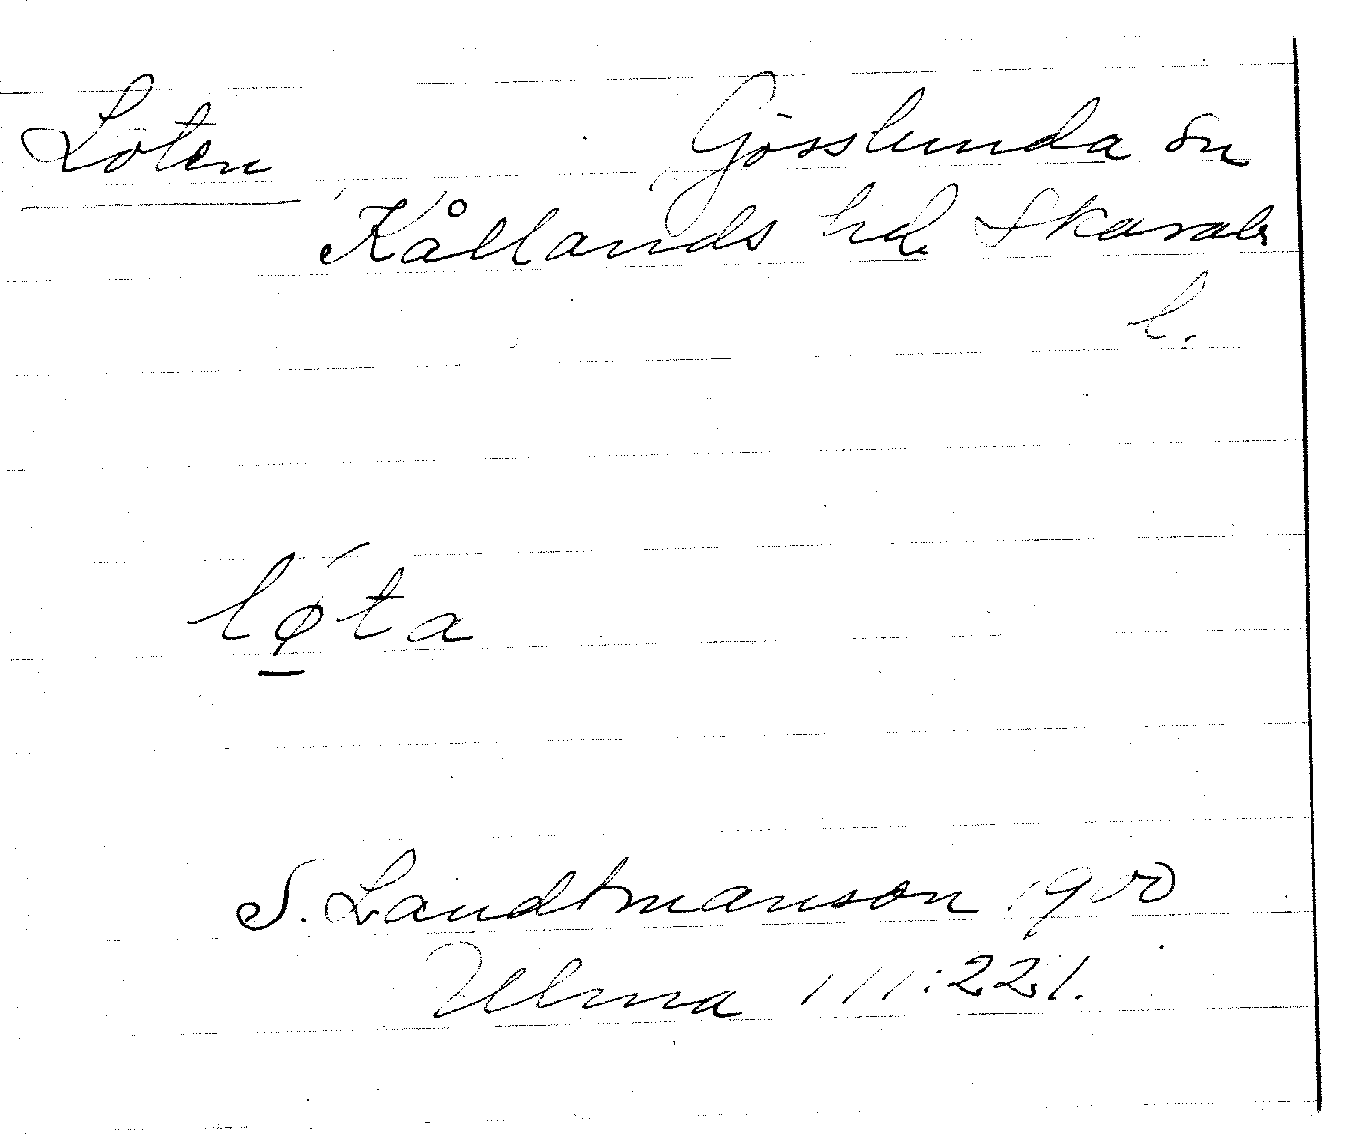 Löten Gösslunda sn
Kållands hd. Skarab.
l.
lǿ̱ta
S. Landtmanson 1900
Ulma 111:221.